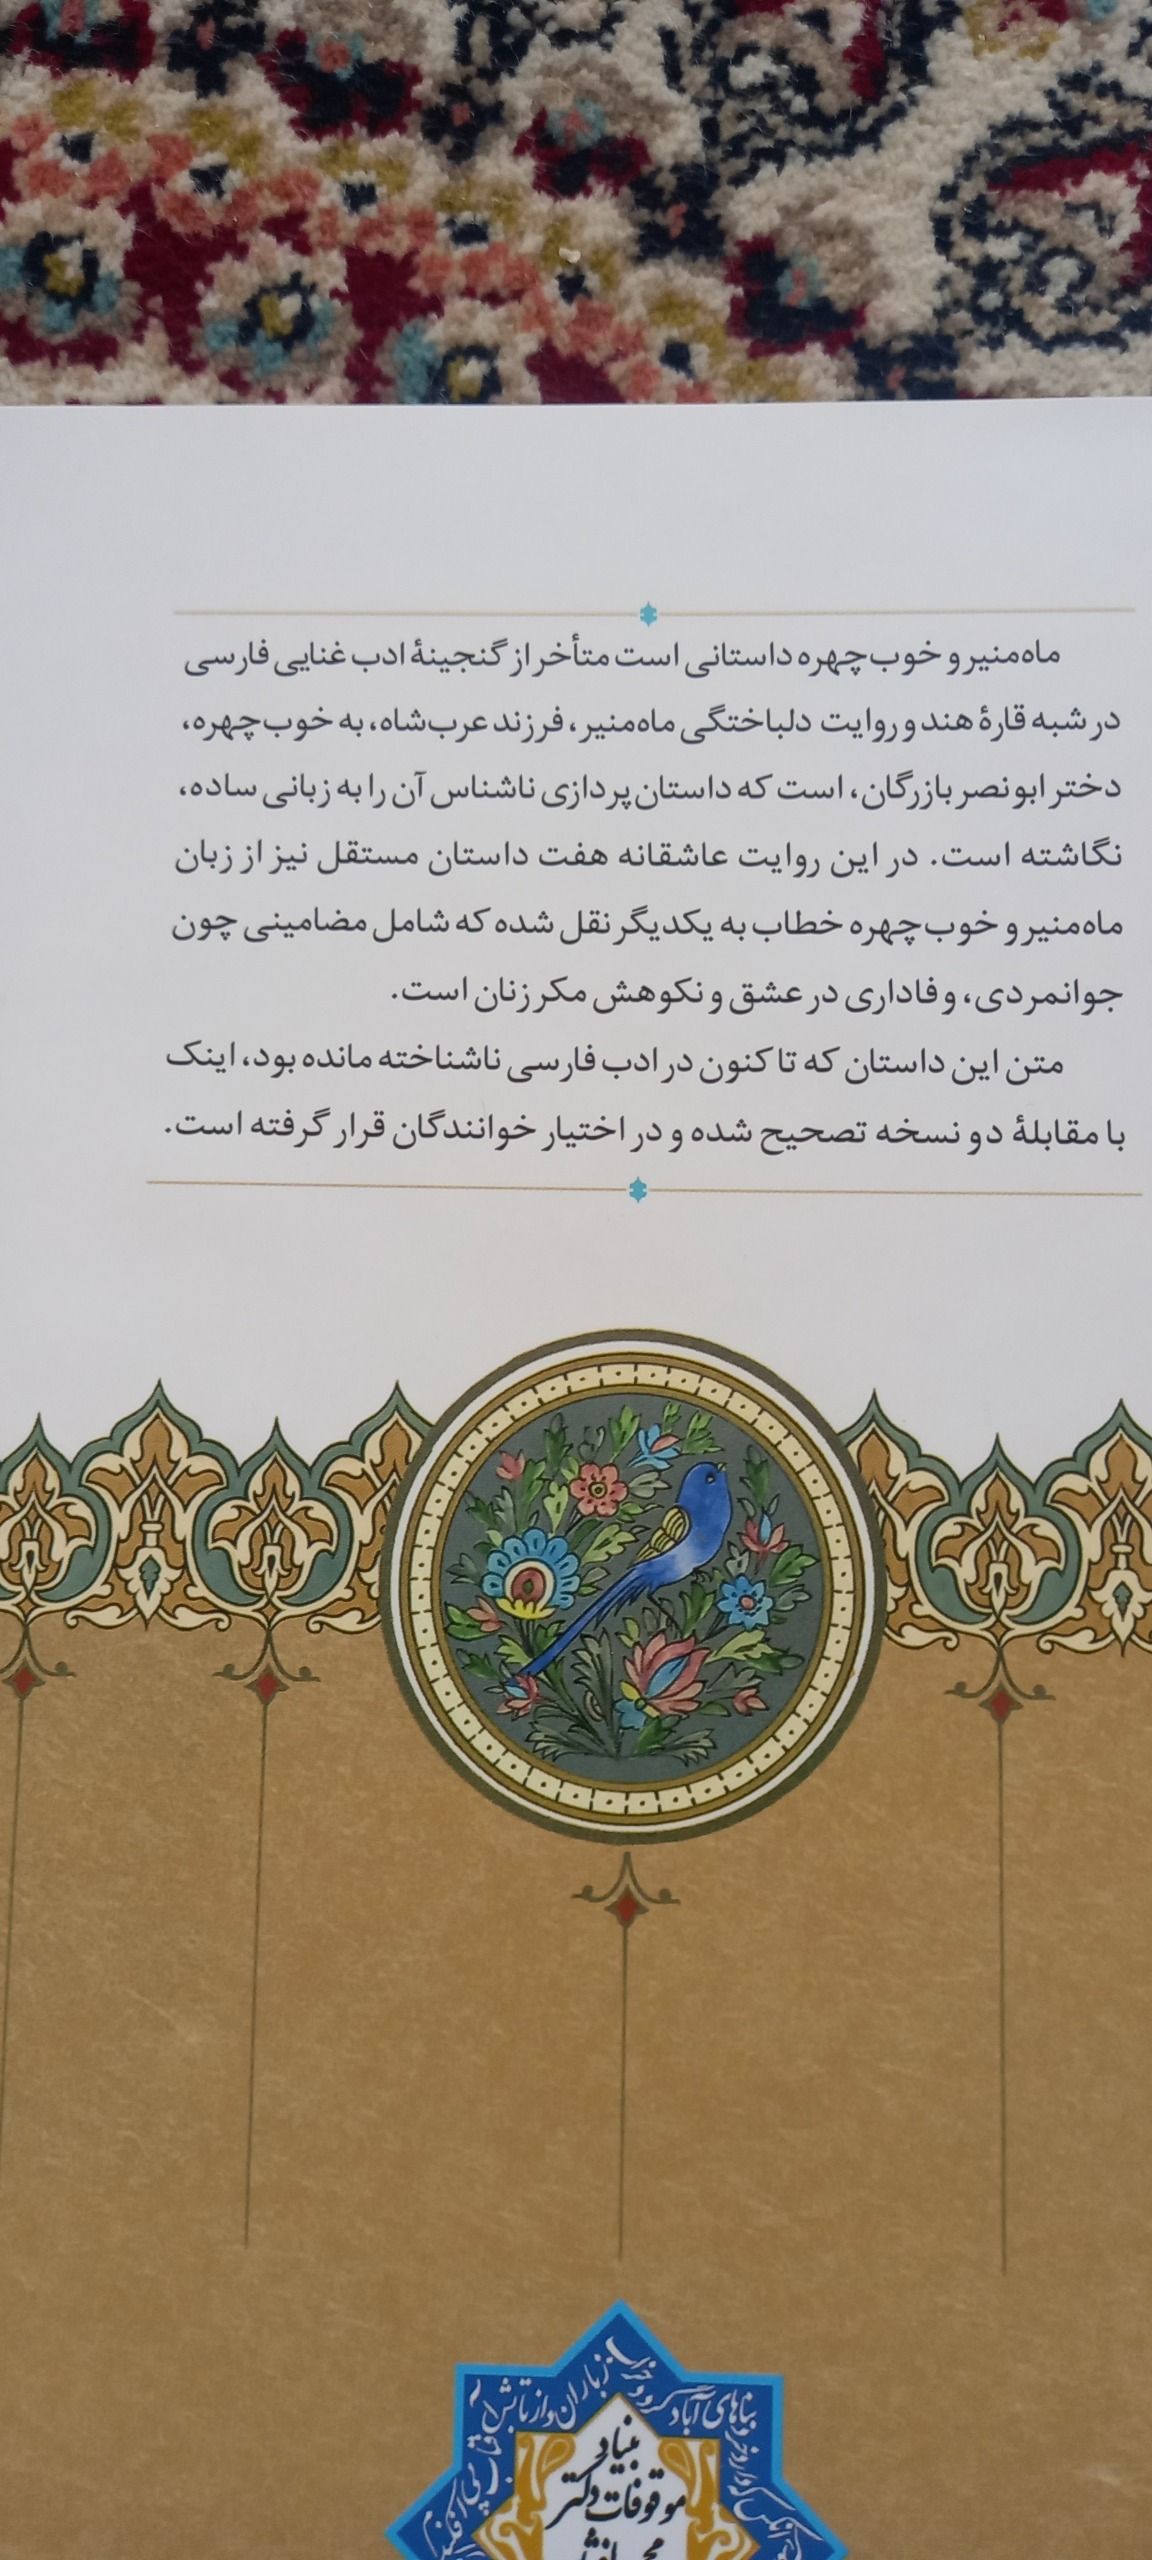 ماه‌منیر و خوب‌چهره داستانی است متأخر از گنجینهٔ ادب غنایی فارسی
در شبه قارهٔ هند و روایت دلباختگی ماه‌منیر، فرزند عرب‌شاه، به خوب‌چهره،
دختر ابونصر بازرگان، است که داستان‌پردازی ناشناس آن را به زبانی ساده،
نگاشته است. در این روایت عاشقانه هفت داستان مستقل نیز از زبان
ماه‌منیر و خوب‌چهره خطاب به یکدیگر نقل شده که شامل مضامینی چون
جوانمردی، وفاداری در عشق و نکوهش مکر زنان است.
متن این داستان که تا کنون در ادب فارسی ناشناخته مانده بود، اینک
با مقابلهٔ دو نسخه تصحیح شده و در اختیار خوانندگان قرار گرفته است.
بناهای آباد گردد خراب
ز باران و از تابش آفتاب
پی افکندم
بنیاد
موقوفات دکتر